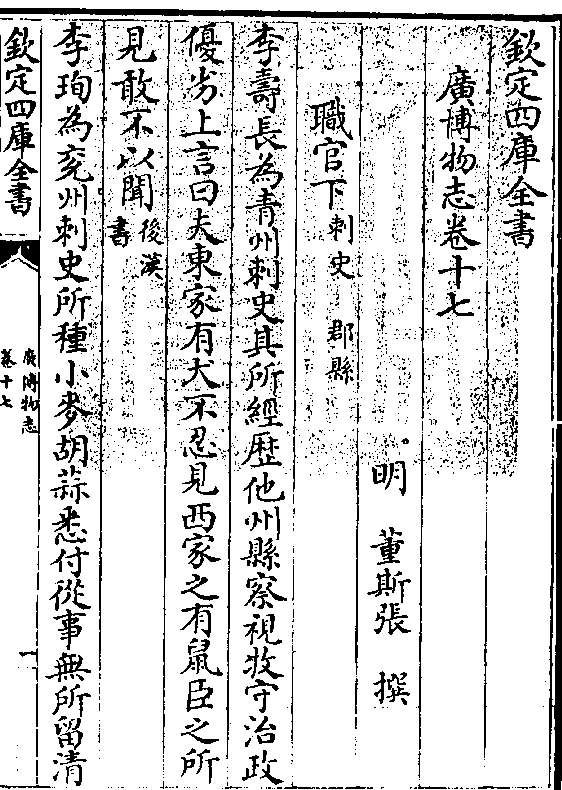 欽定四庫全書
廣博物志卷十七
明　董斯張　撰
職官下刺史　郡縣
李壽長為青州刺史其所經歷他州縣察視牧守治政
優劣上言曰夫東家有犬不忍見西家之有鼠臣之所
見敢不以聞後漢
書
李珣為兖州刺史所種小麥胡蒜悉付從事無所留清
欽定四庫全書
廣博物志
卷十七
一